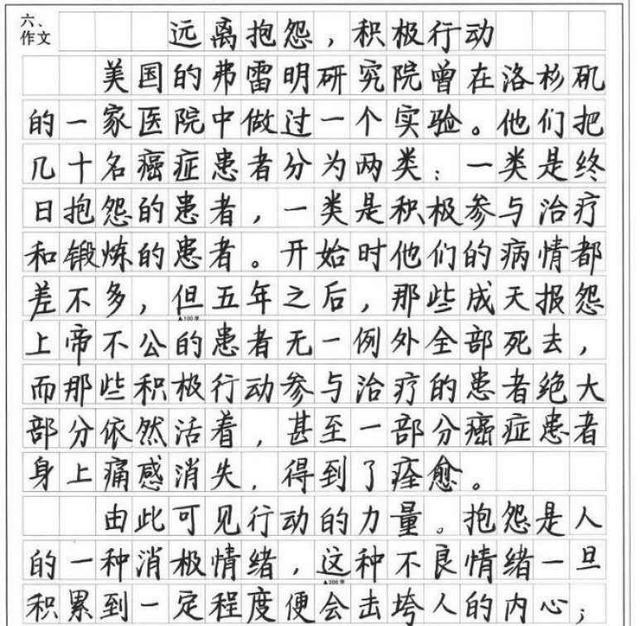 六、
作文
远离抱怨，积极行动
美国的弗雷明研究院曾在洛杉矶
的一家医院中做过一个实验。他们把
几十名癌症患者分为两类：一类是终
日抱怨的患者，一类是积极参与治疗
和锻炼的患者。开始时他们的病情都
差不多，但五年之后，那些成天报怨
▲100字
上帝不公的患者无一例外全部死去，
而那些积极行动参与治疗的患者绝大
部分依然活着，甚至一部分癌症患者
身上痛感消失，得到了痊愈。
由此可见行动的力量。抱怨是人
的一种消极情绪，这种不良情绪一旦
▲200字
积累到一定程度便会击垮人的内心；